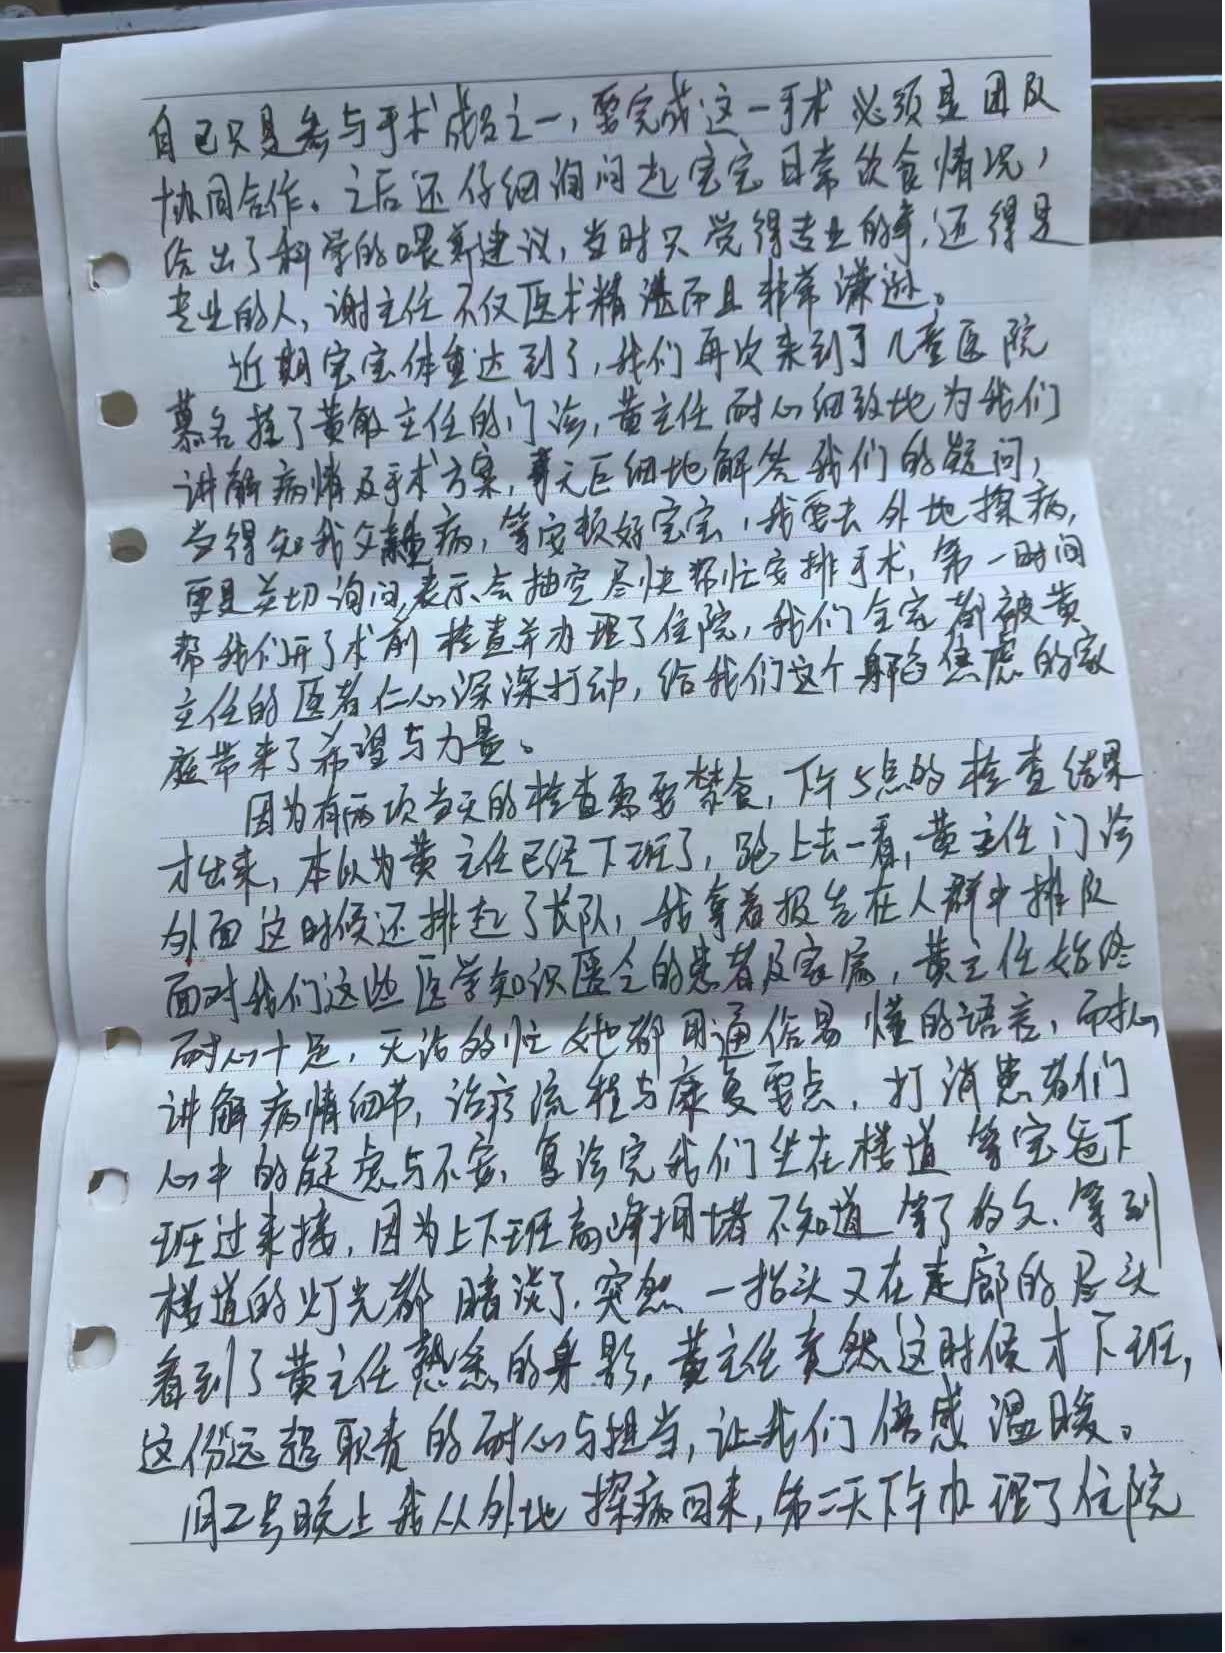 自已只是参与手术成员之一，要完成这一手术必须是团队
协同合作。之后还仔细询问起宝宝日常饮食情况，
给出了科学的喂养建议，当时只觉得专业的事，还得是
专业的人，谢主任不仅医术精湛而且非常谦逊。
近期宝宝体重达到了，我们再次来到了儿童医院
慕名挂了黄敏主任的门诊，黄主任耐心细致地为我们
讲解病情及手术方案，事无巨细地解答我们的疑问，
当得知我父亲重病，等安顿好宝宝，我要去外地探病，
更是关切询问，表示会抽空尽快帮忙安排手术，第一时间
帮我们开了术前检查并办理了住院，我们全家都被黄
主任的医者仁心深深打动，给我们这个身陷焦虑的家
庭带来了希望与力量。
因为有两项当天的检查需要禁食，下午5点的检查结果
才出来，本以为黄主任已经下班了，跑上去一看，黄主任门诊
外面这时候还排起了长队，我拿着报告在人群中排队
面对我们这些医学知识匮乏的患者及家属，黄主任始终
耐心十足，无论多忙她都用通俗易懂的语言，耐心
讲解病情细节，治疗流程与康复要点，打消患者们
心中的疑虑与不安，复诊完我们坐在楼道等宝爸下
班过来接，因为上下班高峰拥堵不知道等了多久，等到
楼道的灯光都暗淡了，突然一抬头又在走廊的尽头
看到了黄主任熟悉的身影，黄主任竟然这时候才下班，
这份远超职责的耐心与担当，让我们倍感温暖。
月2号晚上我从外地探病回来，第二天下午办理了住院